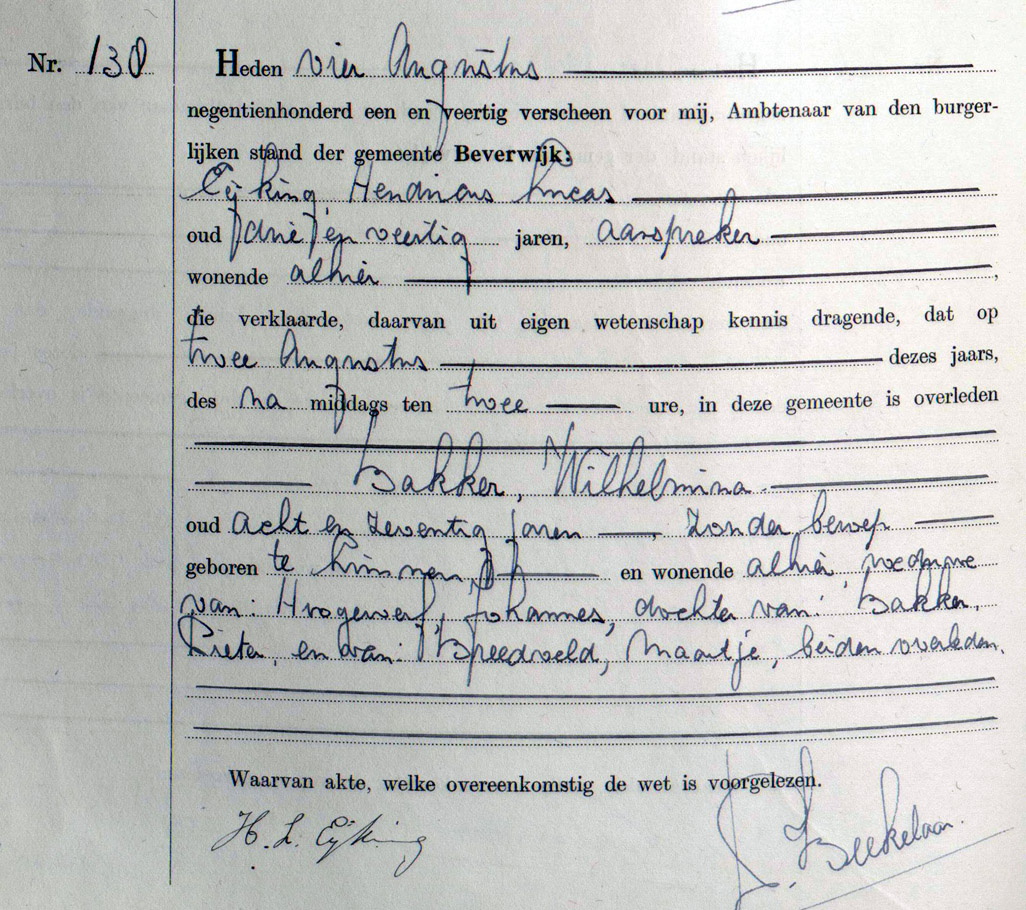 Nr. 130
Heden vier Augustus
negentienhonderd een en veertig verscheen voor mij, Ambtenaar van den burger-
lijken stand der gemeente Beverwijk:
Eijking Hendricus Lucas
oud drie en veertig jaren, aanspreker
wonende alhier,
die verklaarde, daarvan uit eigen wetenschap kennis dragende, dat op
twee Augustus dezes jaars,
des na middags ten twee ure, in deze gemeente is overleden
Bakker, Wilhelmina
oud acht en zeventig jaren, zonder beroep
geboren te Limmen, en wonende alhier, weduwe
van: Hoogewerf, Johannes, dochter van: Bakker,
Pieter, en van: Breedveld, Maartje, beiden overleden.
Waarvan akte, welke overeenkomstig de wet is voorgelezen.
H. L. Eijking
Beekelaar.